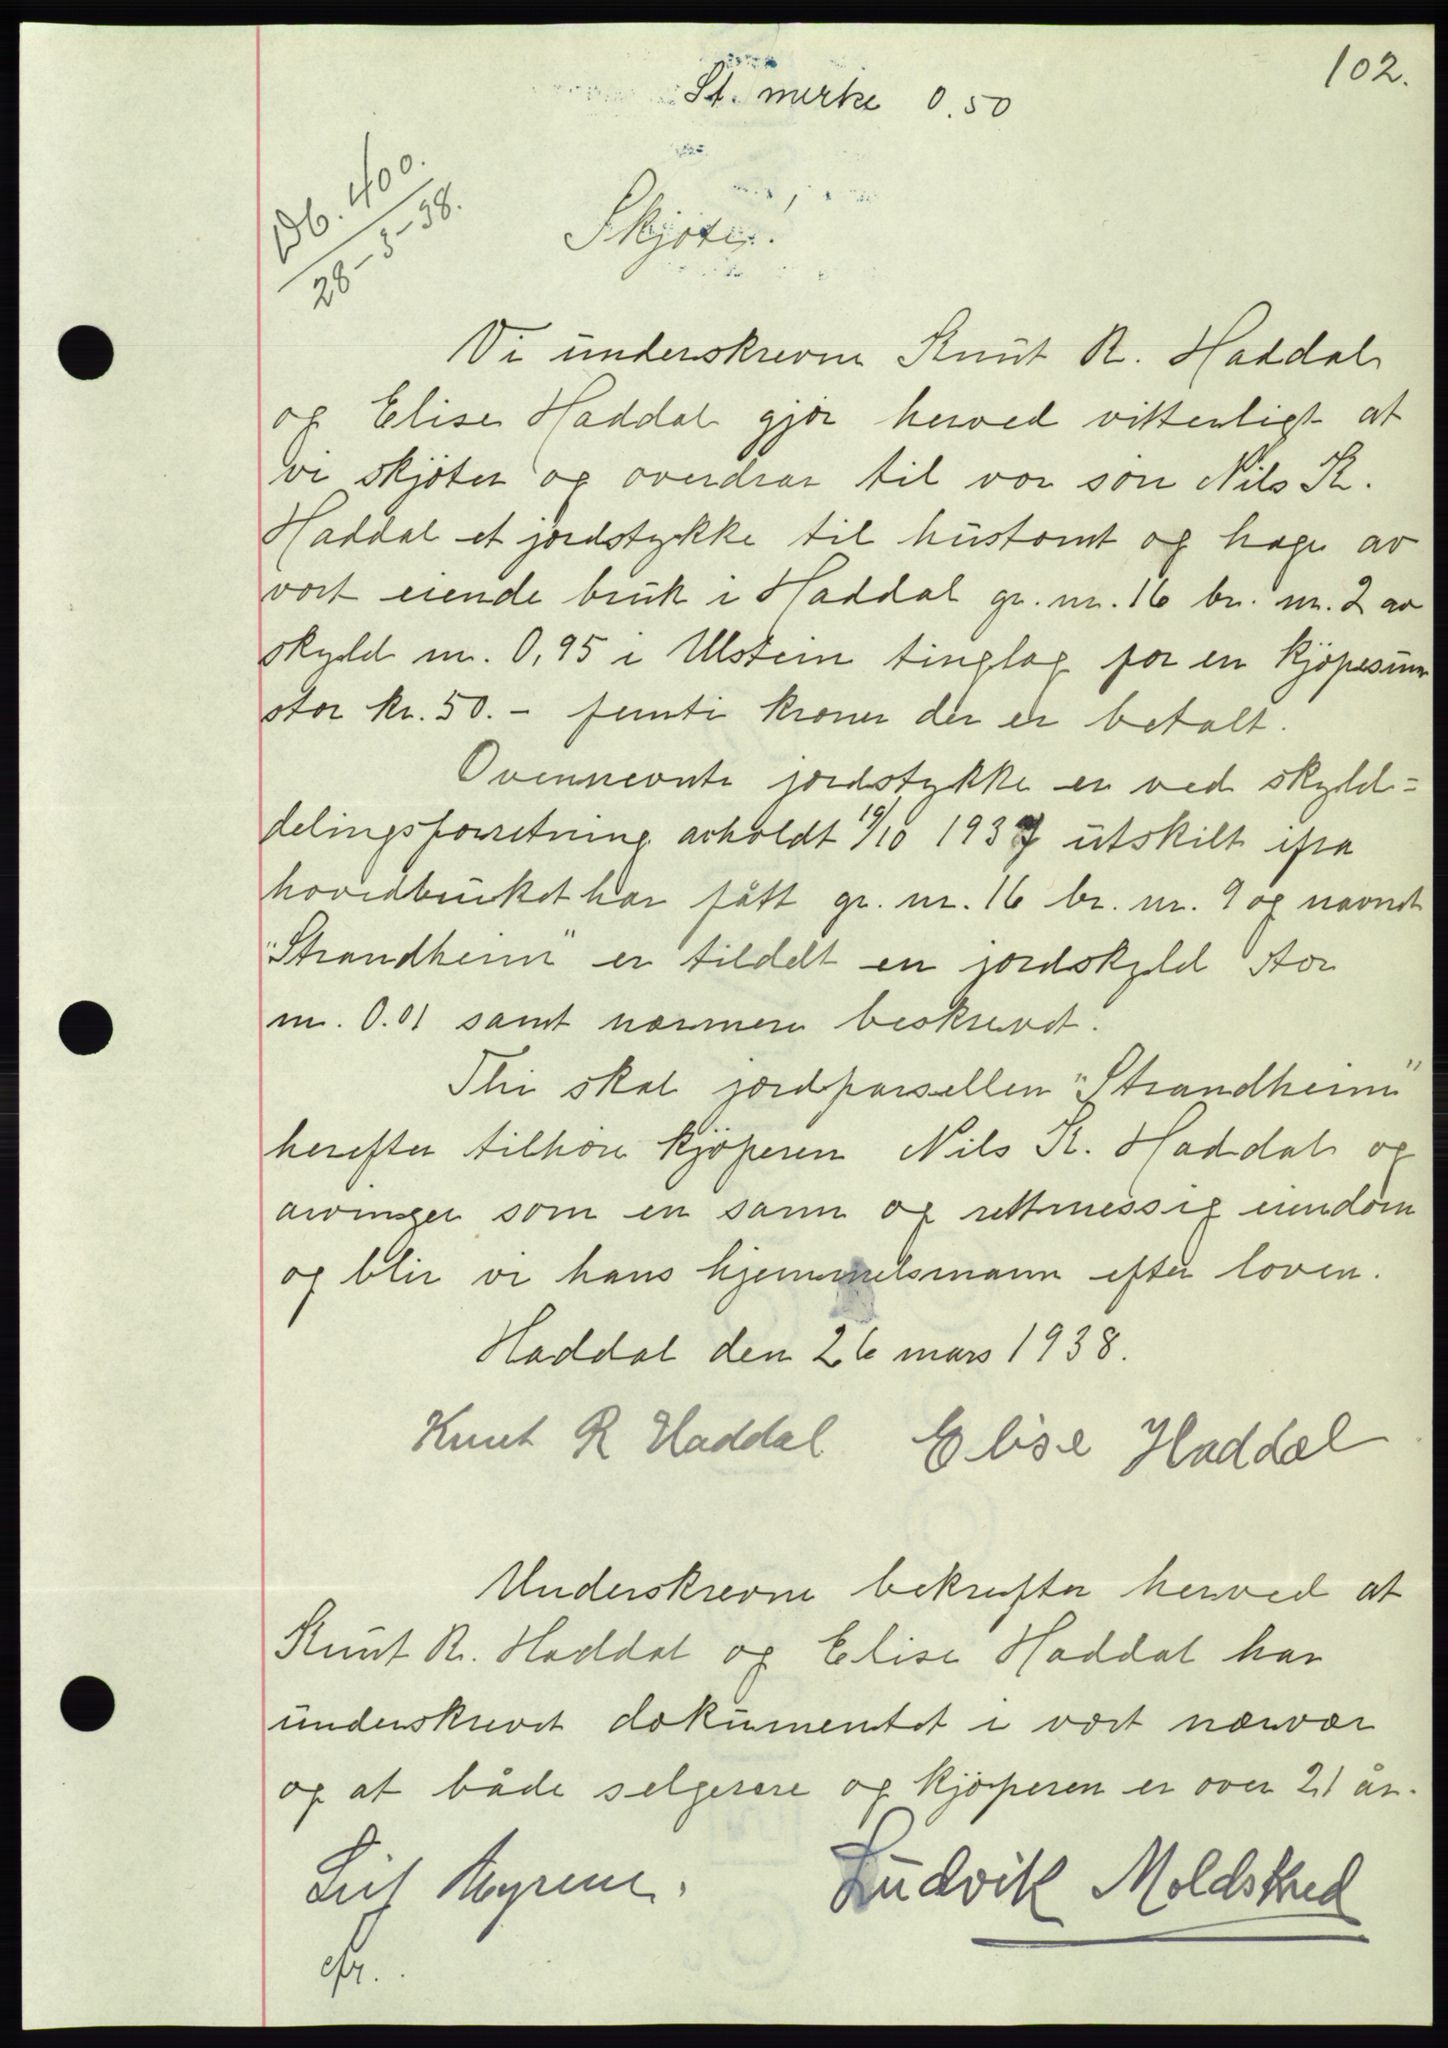 102.
St. merke 0.50
Db. 400.
28-3-38.
Skjøte.
Vi underskrevne Knut R. Haddal
og Elise Haddal gjør herved vitterligt at
vi skjøter og overdrar til vor søn Nils K.
Haddal et jordstykke til hustomt og hage av
vort eiende bruk i Haddal gr. nr. 16 br. nr. 2 av
skyld m. 0,95 i Ulstein tinglag for en kjøpesum
stor kr. 50.- femti kroner der er betalt.
Ovennevnte jordstykke er ved skyld=
delingsforretning avholdt 19/10 1937 utskilt ifra
hovedbruket har fått gr. nr. 16 br. nr. 9 og navnet
"Strandheim" er tildelt en jordskyld stor
m. 0.01 samt nærmere beskrevet.
Thi skal jordparsellen "Strandheim"
herefter tilhøre kjøperen Nils K. Haddal og
arvinger som en sann og rettmessig eiendom
og blir vi hans hjemmelsmann efter loven.
Haddal den 26 mars 1938.
Knut R Haddal Elise Haddal
Underskrevne bekrefter herved at
Knut R. Haddal og Elise Haddal har
underskrevet dokumentet i vort nærvær
og at både selgerere og kjøperen er over 21 år.
Leif Myrene. Ludvik Moldskred